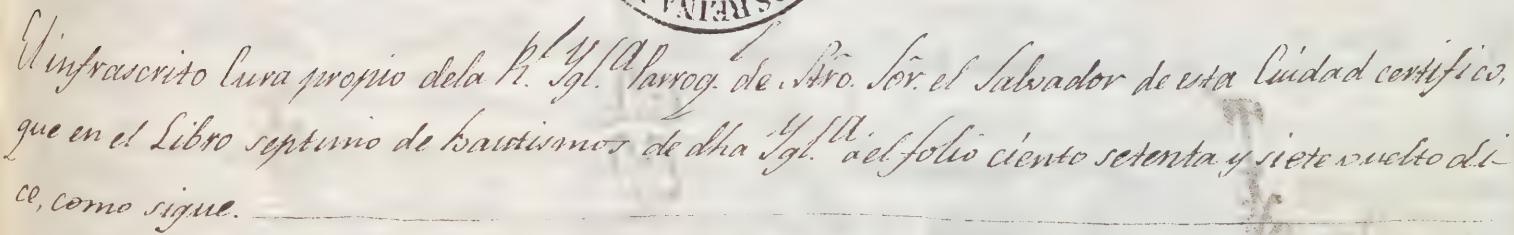 OS REINA
El infrascrito Cura propio dela R.l Ygl.a Parroq.l de Ntro. Sor. el Salvador de esta Ciudad certifico,
que en el Libro septimo de bautismos de dha Ygl.a àel folio ciento setenta y siete vuelto di-
ce, como sigue.